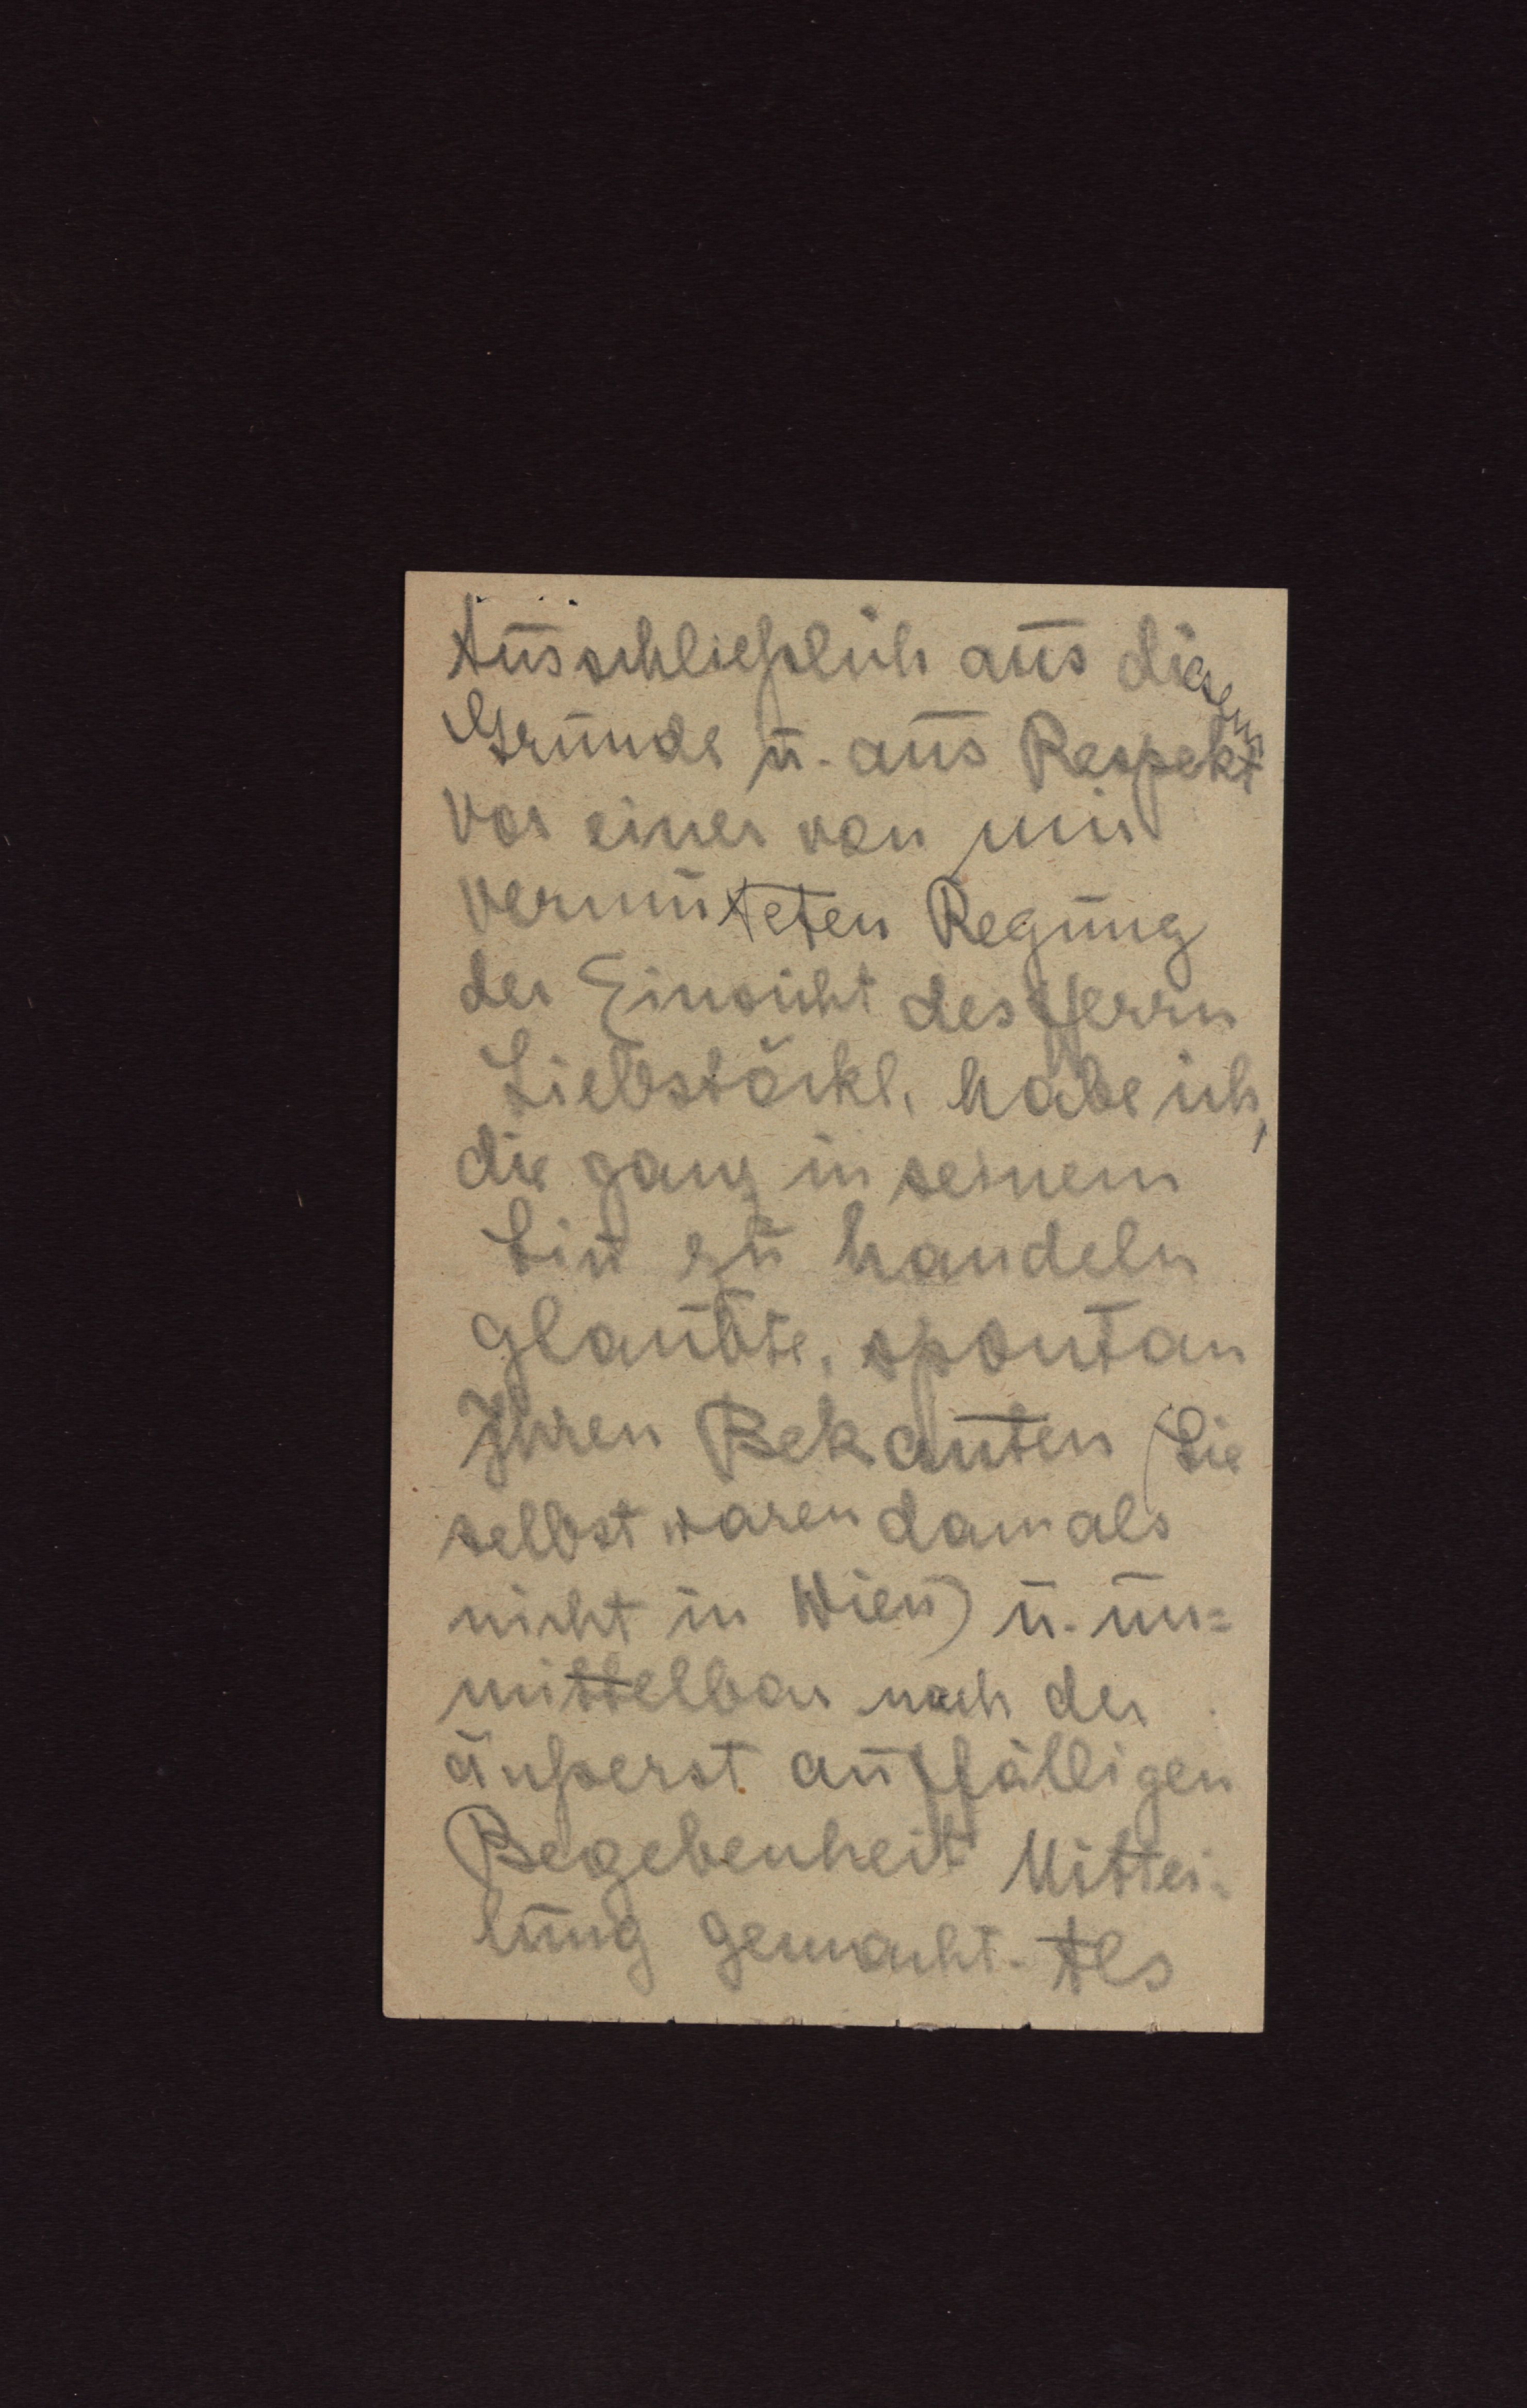 Ausschließlich aus diesem
Grunde u. aus Respekt
vor einer von mir
vermuteten Regung
der Einsicht des Herrn
Liebstöckl, habe ich,
die ganz in seinem
Sin̅ zu handeln
glaubte, spontan
Ihren Bekan̅ten (Sie
selbst waren damals
nicht in Wien) u. un=
mittelbar nach der
äußerst auffälligen
Begebenheit Mittei-
lung gemacht. Als